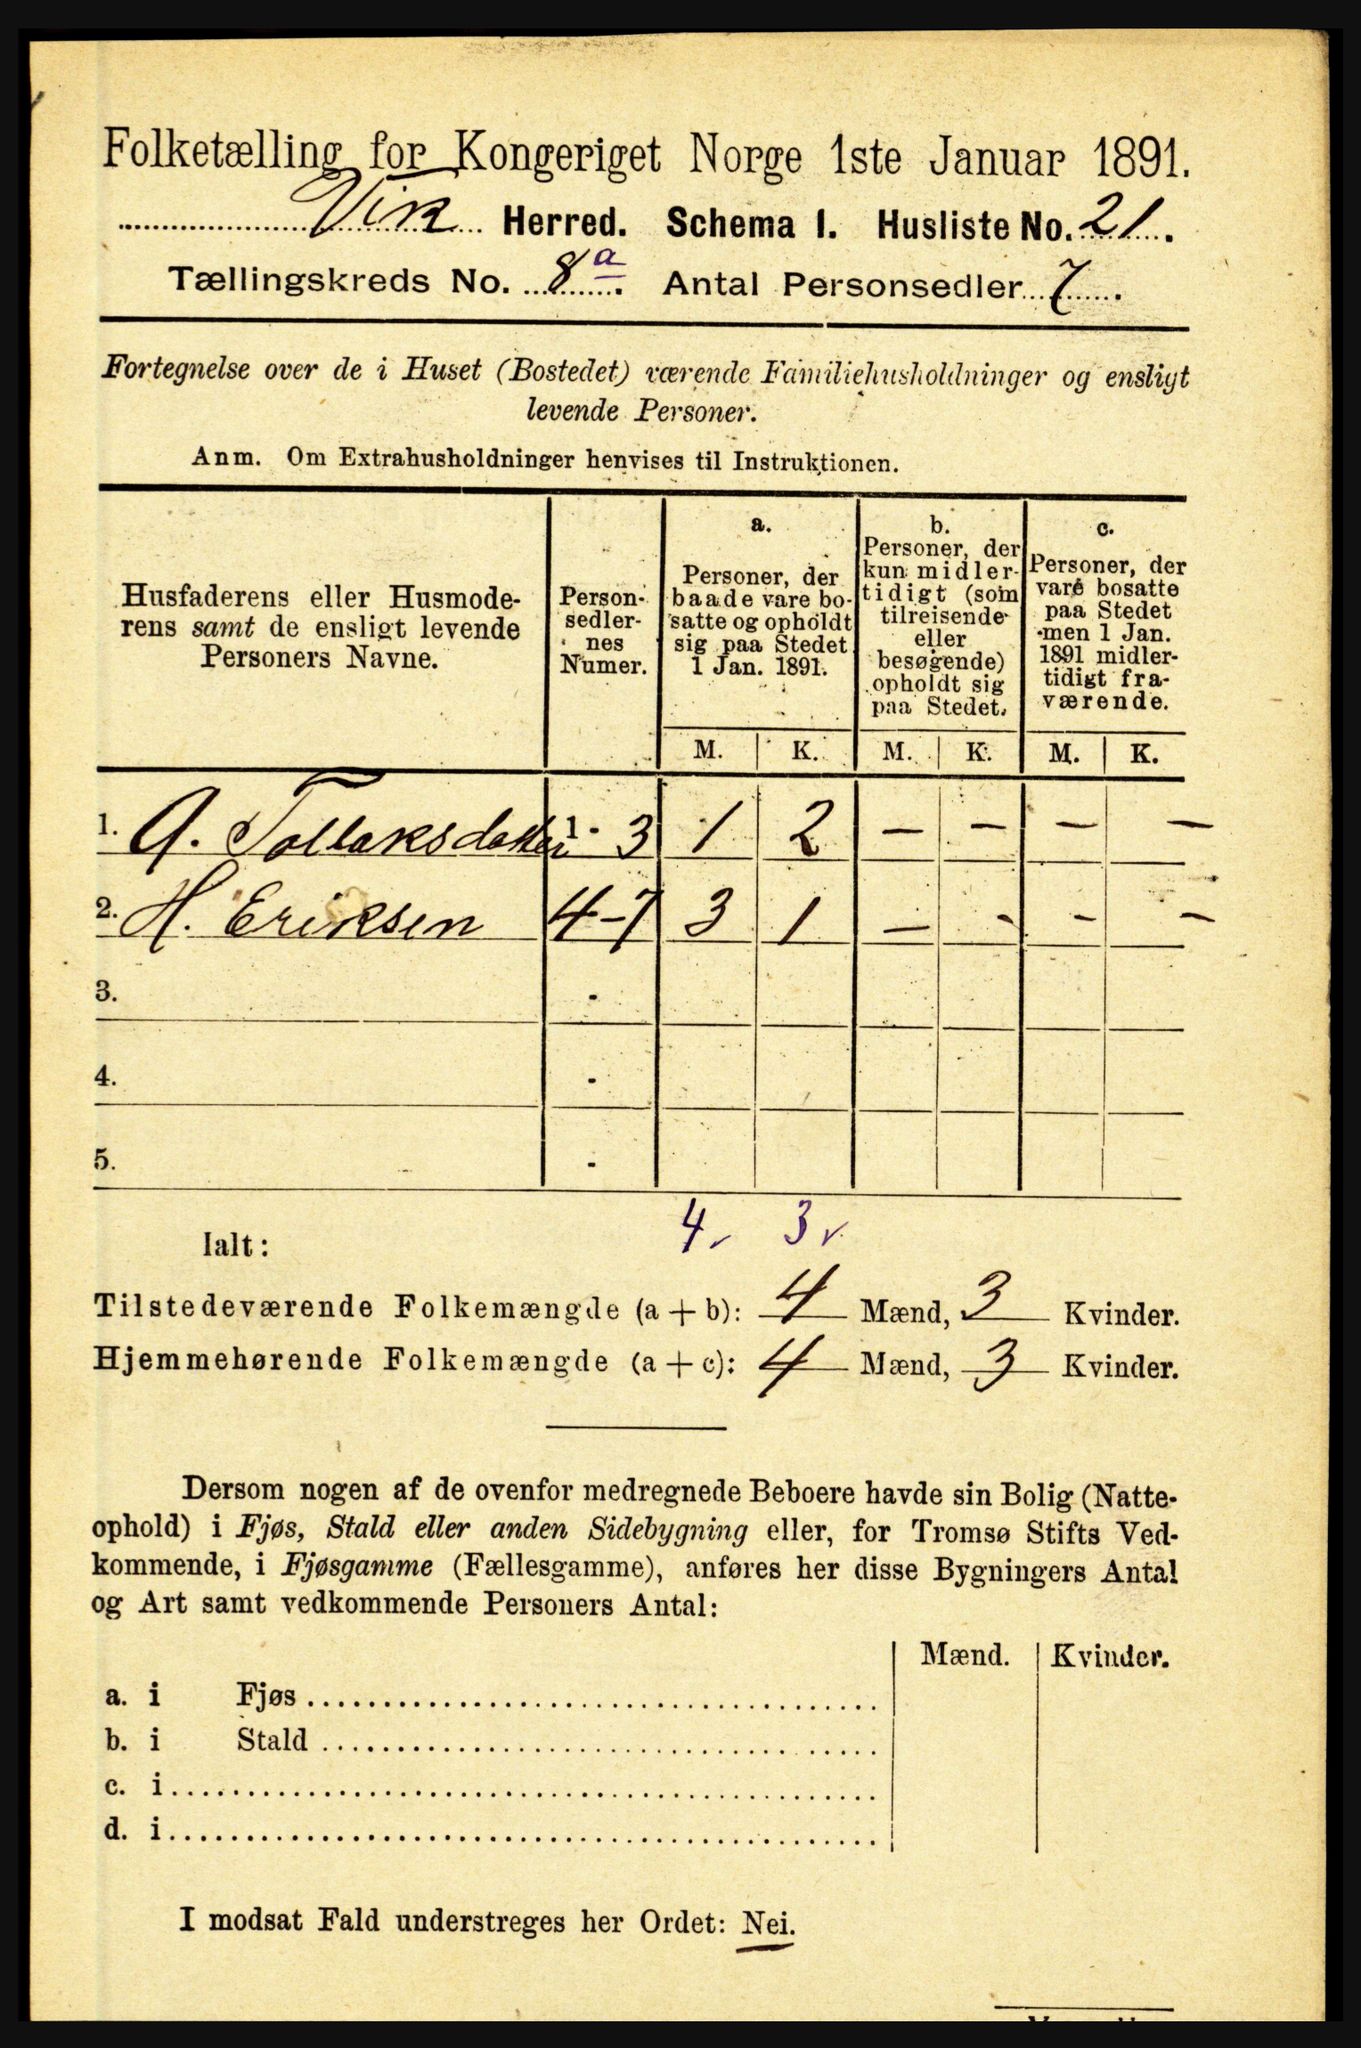 Folketælling for Kongeriget Norge 1ste Januar 1891.
Vik Herred. Schema I. Husliste No. 21.
Tællingskreds No. 8a. Antal Personsedler 7.
Fortegnelse over de i Huset (Bostedet) værende Familiehusholdninger og ensligt
levende Personer.
Anm. Om Extrahusholdninger henvises til Instruktionen.
Husfaderens eller Husmode-
rens samt de ensligt levende
Personers Navne.
Person-
sedler-
nes
Numer.
a.
Personer, der
baade vare bo-
satte og opholdt
sig paa Stedet
1 Jan. 1891.
b.
Personer, der
kun midler-
tidigt (som
tilreisende
eller
besøgende)
opholdt sig
paa Stedet.
c.
Personer, der
vare bosatte
paa Stedet
men 1 Jan.
1891 midler-
tidigt fra-
værende.
M. K. M. K. M. K.
1. A. Tollaksdatter 1 - 3 1 2 — — — —
2. H. Eriksen 4-7 3 1 — - - —
3. -
4. -
5. -
Ialt: 4 3
Tilstedeværende Folkemængde (a + b): 4 Mænd, 3 Kvinder.
Hjemmehørende Folkemængde (a + c): 4 Mænd, 3 Kvinder.
Dersom nogen af de ovenfor medregnede Beboere havde sin Bolig (Natte-
ophold) i Fjøs, Stald eller anden Sidebygning eller, for Tromsø Stifts Ved-
kommende, i Fjøsgamme (Fællesgamme), anføres her disse Bygningers Antal
og Art samt vedkommende Personers Antal:
Mænd. Kvinder.
a. i Fjøs
b. i Stald
c. i
d. i
I modsat Fald understreges her Ordet: Nei.